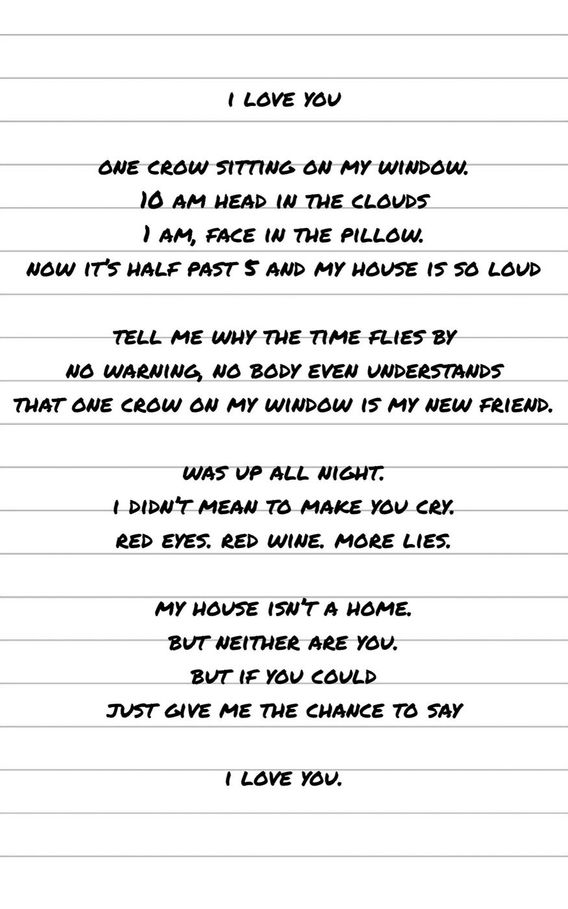 I LOVE YOU
ONE CROW SITTING ON MY WINDOW.
10 AM HEAD IN THE CLOUDS
1 AM, FACE IN THE PILLOW.
NOW IT'S HALF PAST 5 AND MY HOUSE IS SO LOUD
TELL ME WHY THE TIME FLIES BY
NO WARNING, NO BODY EVEN UNDERSTANDS
THAT ONE CROW ON MY WINDOW IS MY NEW FRIEND.
WAS UP ALL NIGHT.
I DIDN'T MEAN TO MAKE YOU CRY.
RED EYES. RED WINE. MORE LIES.
MY HOUSE ISN'T A HOME.
BUT NEITHER ARE YOU.
BUT IF YOU COULD
JUST GIVE ME THE CHANCE TO SAY
I LOVE YOU.